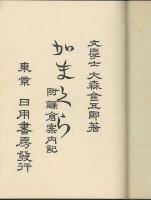 文學士 大森金五郎著
かまくら
附鎌倉案内記
東京 日用書房發行